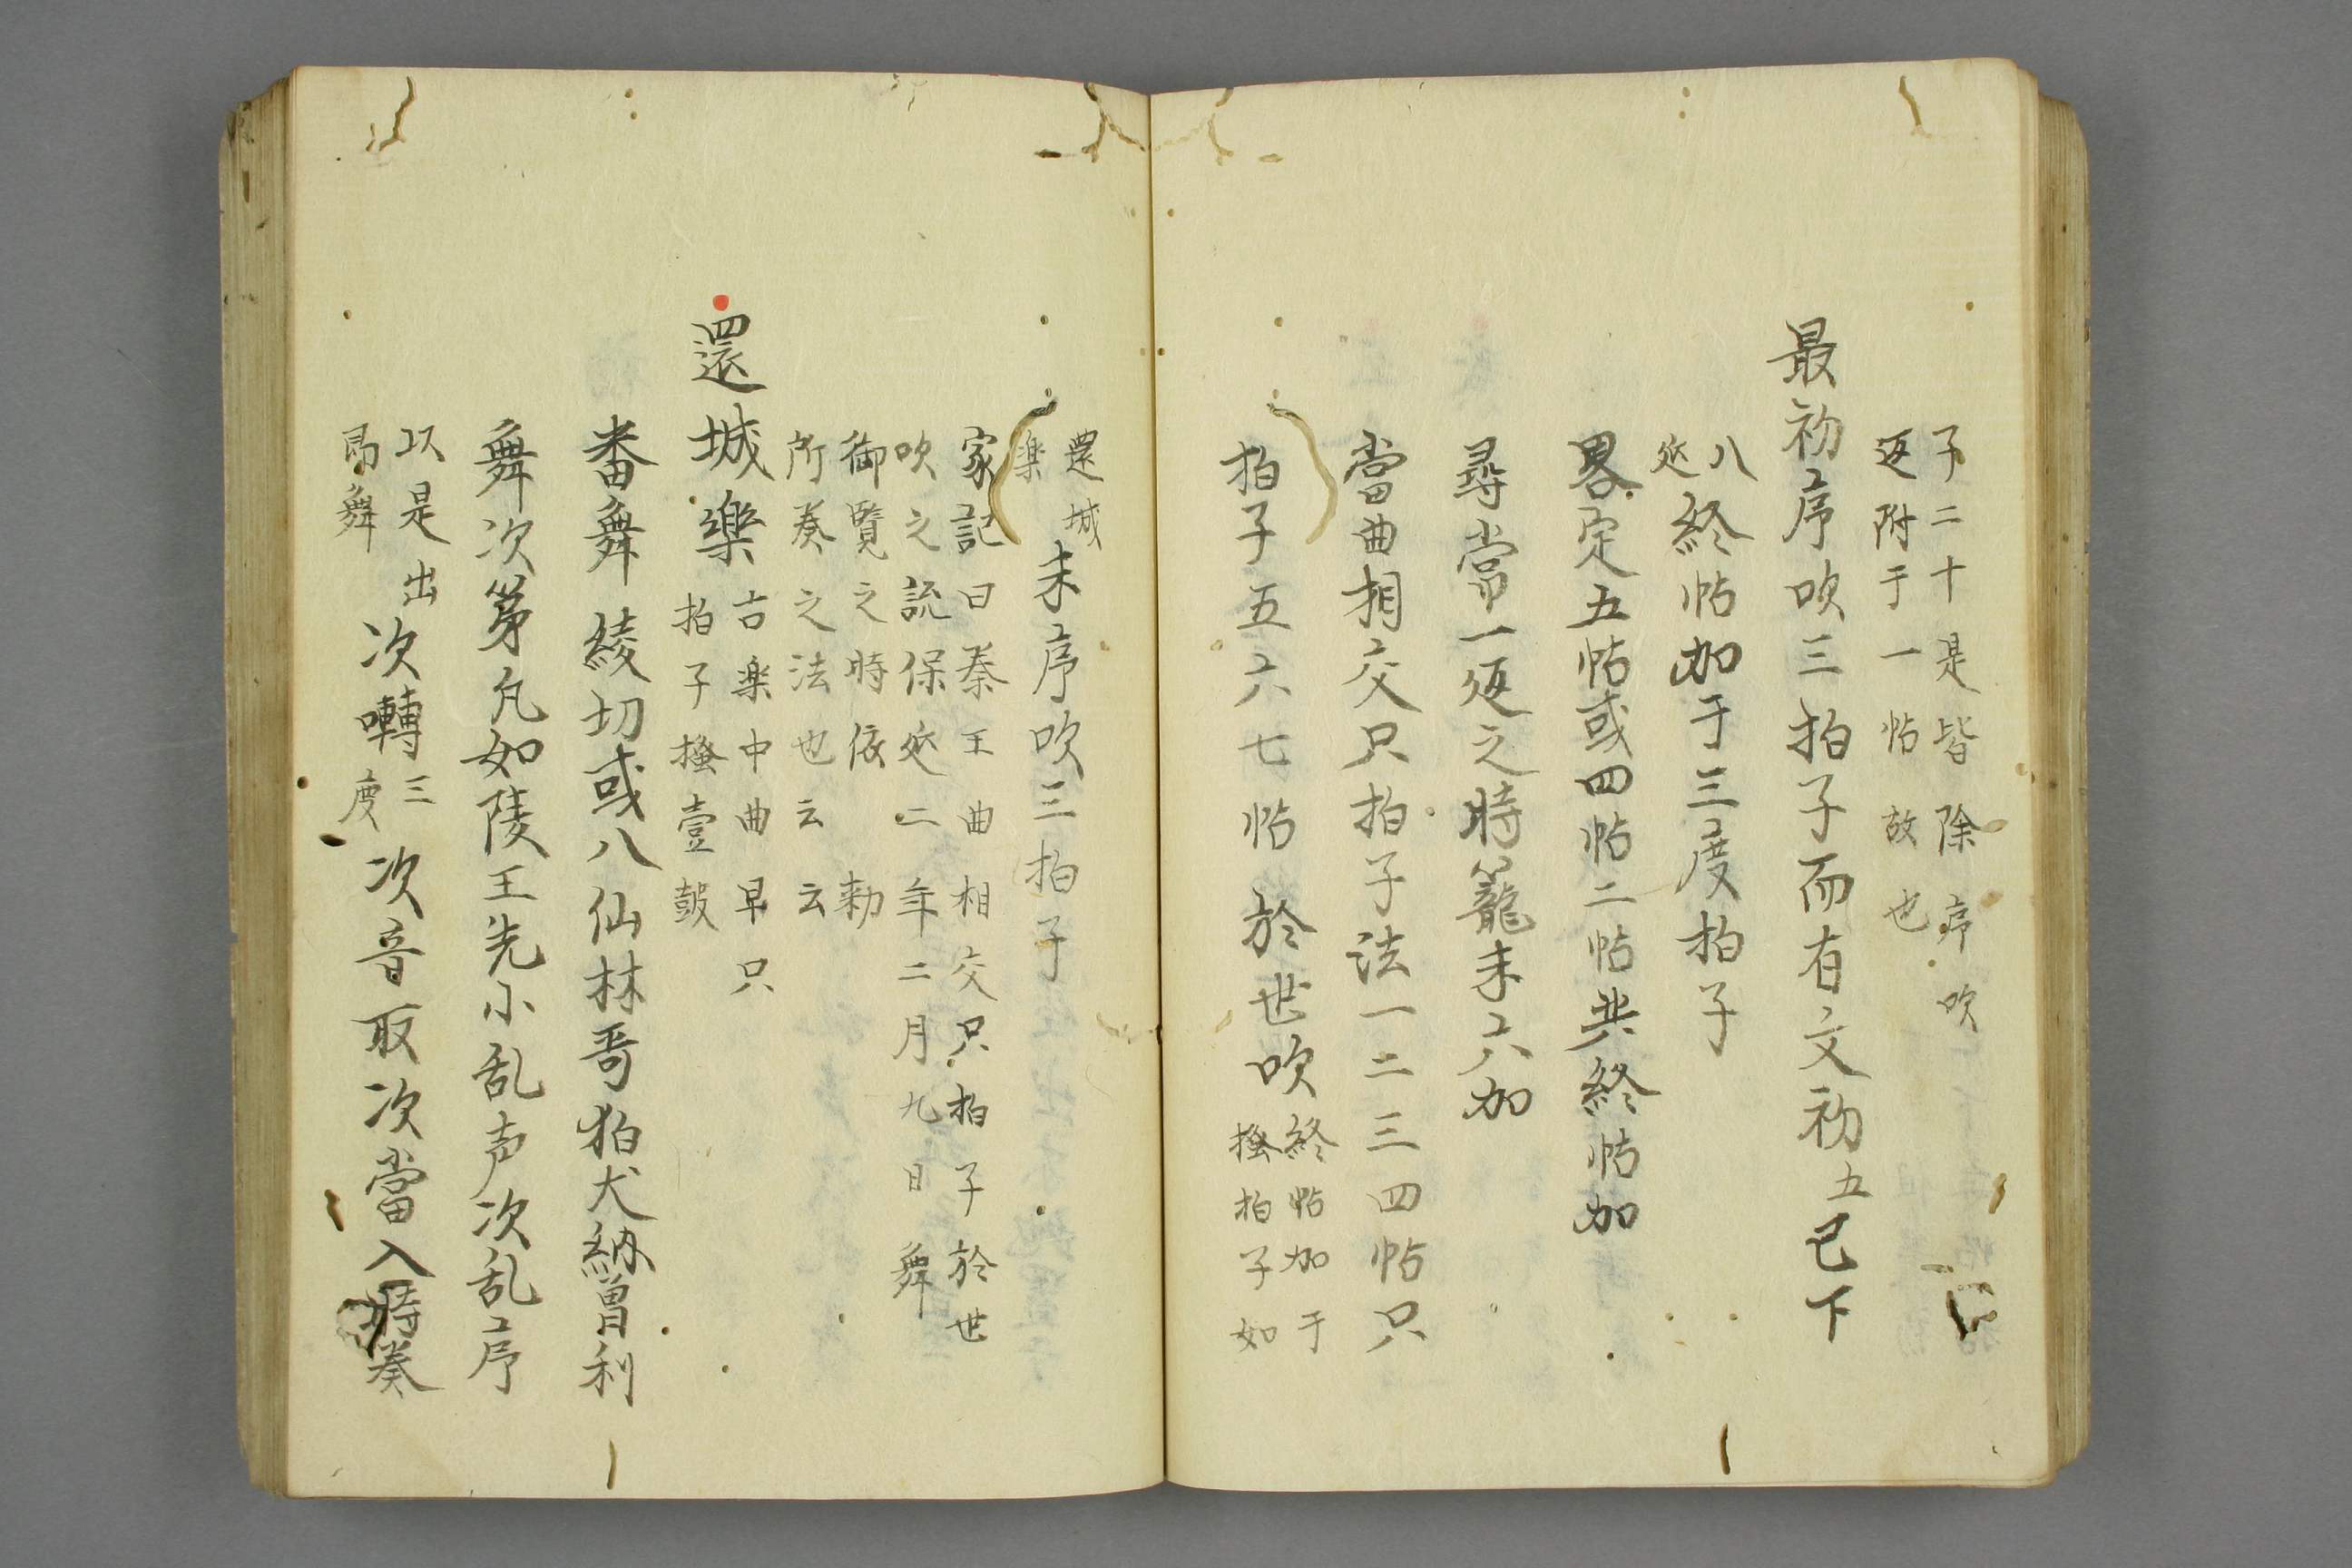 子二十是皆除序吹
返附于一帖故也
最初序吹三拍子而有文初五已下
八
返終帖加于三度拍子
畧定五帖或四帖二帖共終帖加
尋常一返之時籠末六加
當曲相交只拍子法一二三四帖只
拍子五六七帖於世吹
終帖加于
搔拍子如
還城
楽
末序吹三拍子
家記曰秦王曲相交只拍子於世
吹之説保延二年二月九日舞
御覧之時依 勅
所奏之法也云云
還城樂
古楽中曲早只
拍子搔壹鼓
番舞綾切或八仙林哥狛犬納曽利
舞次第凡如陵王先小乱声次乱序
以是出
昴舞
次囀
三
度
次音取次當入時奏